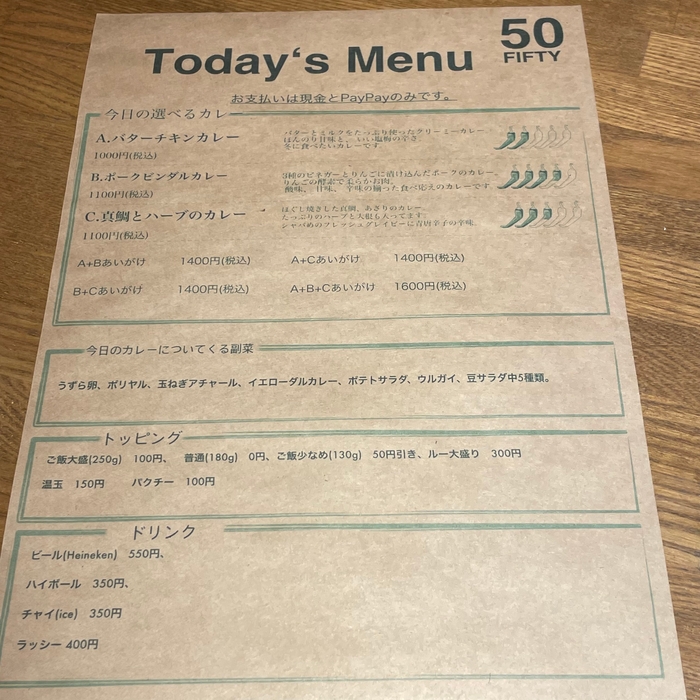 Today's Menu
50
FIFTY
お支払いは現金とPayPayのみです。
今日の選べるカレー
A.バターチキンカレー
バターとミルクをたっぷり使ったクリーミーカレー。
ほんのり甘味と、いい塩梅の辛さ。
冬に食べたいカレーです。
1000円(税込)
B.ポークビンダルカレー
3種のビネガーとりんごに漬け込んだポークのカレー。
りんごの酵素で柔らかお肉。
酸味、甘味、辛味の揃った食べ応えのカレーです。
1100円(税込)
C.真鯛とハーブのカレー
ほぐし焼きした真鯛、あさりのカレー。
たっぷりのハーブと大根も入ってます。
シャバめのフレッシュグレイビーに青唐辛子の辛味。
1100円(税込)
A+Bあいがけ 1400円(税込) A+Cあいがけ 1400円(税込)
B+Cあいがけ 1400円(税込) A+B+Cあいがけ 1600円(税込)
今日のカレーについてくる副菜
うずら卵、ポリヤル、玉ねぎアチャール、イエローダルカレー、ポテトサラダ、ウルガイ、豆サラダ中5種類。
トッピング
ご飯大盛(250g) 100円、 普通(180g) 0円、ご飯少なめ(130g) 50円引き、ルー大盛り 300円
温玉 150円 パクチー 100円
ドリンク
ビール(Heineken) 550円、
ハイボール 350円、
チャイ(ice) 350円
ラッシー 400円